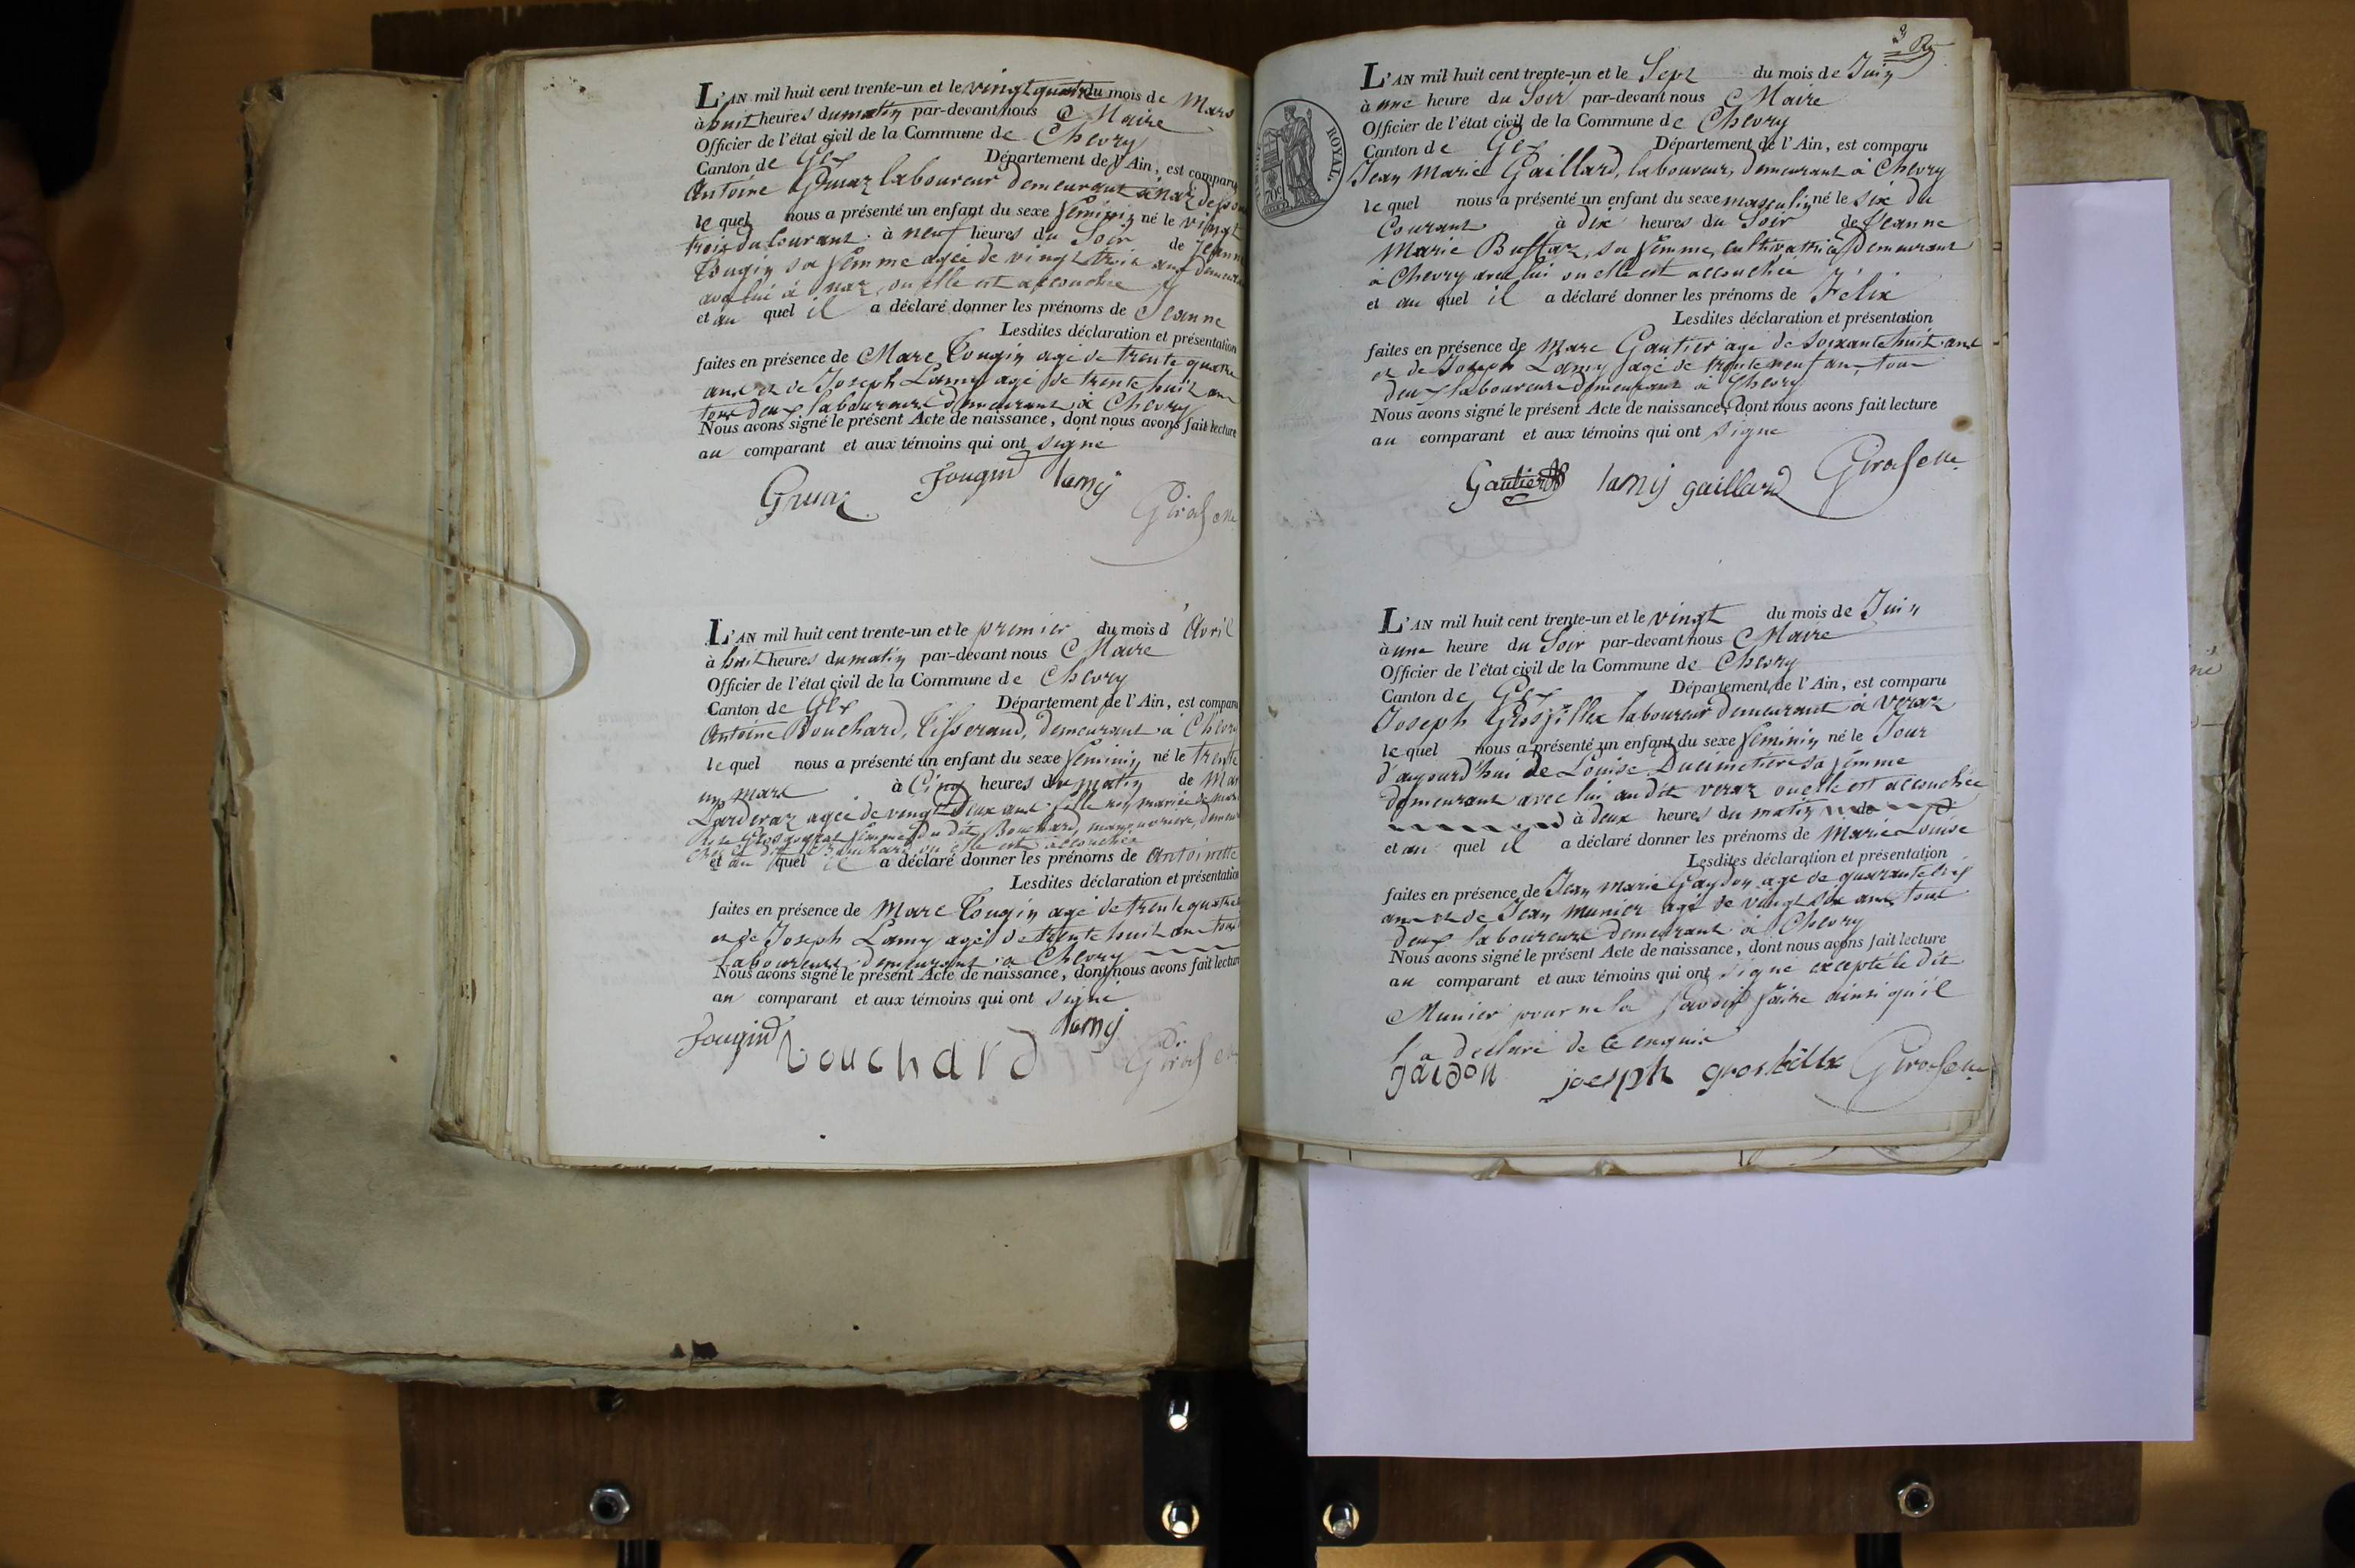 L'AN mil huit cent trente-un et le vingt quatre du mois de Mars
à huit heures du matin par-devant nous Maire
Officier de l'état civil de la Commune de Chevry
Canton de Gex Département de l'Ain, est comparu
Antoine Gruaz laboureur demeurant à naz
le quel nous a présenté un enfant du sexe féminin né le vingt
trois du Courant à neuf heures du Soir de Jeanne
Tougin sa femme agée de vingt trois ans
avec lui à naz, ou elle est accouchée
et au quel il a déclaré donner les prénoms de Jeanne
Lesdites déclaration et présentation
faites en présence de Marc Tougin agé de trente quatre
ans et de Joseph Lamy agé de trente huit ans
tous deux laboureurs demeurant à Chevry
Nous avons signé le présent Acte de naissance, dont nous avons fait lecture
au comparant et aux témoins qui ont signé
Gruaz Tougin lamy Girod
L'AN mil huit cent trente-un et le premier du mois d'Avril
à huit heures du matin par-devant nous Maire
Officier de l'état civil de la Commune de Chevry
Canton de Gex Département de l'Ain, est comparu
Antoine Bouchard, Tisserand, demeurant à Chevry
le quel nous a présenté un enfant du sexe féminin né le trente
un Mars à Cinq heures du matin de
agée de vingt deux ans
femme du dit Bouchard,
dit Bouchard ou elle est accouchée
et au quel il a déclaré donner les prénoms de Antoinette
Lesdites déclaration et présentation
faites en présence de Marc Tougin agé de trente quatre
et de Joseph Lamy agé de trente huit ans tous
laboureurs demeurant à Chevry
Nous avons signé le présent Acte de naissance, dont nous avons fait lecture
au comparant et aux témoins qui ont signé
Tougin bouchard lamy Girod
3
ROYAL
70c
L'AN mil huit cent trente-un et le Sept du mois de Juin
à une heure du Soir par-devant nous Maire
Officier de l'état civil de la Commune de Chevry
Canton de Gex Département de l'Ain, est comparu
Jean Marie Gaillard, laboureur, demeurant à Chevry
le quel nous a présenté un enfant du sexe masculin né le Six du
Courant à dix heures du Soir de Jeanne
Marie Buffaz, sa femme, cultivatrice demeurant
à Chevry avec lui ou elle est accouchée
et au quel il a déclaré donner les prénoms de Félix
Lesdites déclaration et présentation
faites en présence de Marc Gautier agé de Soixante huit ans
et de Joseph Lamy agé de trente neuf ans tous
deux laboureurs demeurant à Chevry
Nous avons signé le présent Acte de naissance, dont nous avons fait lecture
au comparant et aux témoins qui ont signé
Gautier lamy gaillard Girod
L'AN mil huit cent trente-un et le vingt du mois de Juin
à une heure du Soir par-devant nous Maire
Officier de l'état civil de la Commune de Chevry
Canton de Gex Département de l'Ain, est comparu
Joseph Grosfillex laboureur demeurant à Veraz
le quel nous a présenté un enfant du sexe féminin né le Jour
d'aujourd'hui de Louise Ducimetière sa femme
demeurant avec lui au dit veraz ou elle est accouchée
à deux heures du matin de
et au quel il a déclaré donner les prénoms de Marie Louise
Lesdites déclaration et présentation
faites en présence de Jean marie Gaydon agé de quarante cinq
ans et de Jean Munier agé de vingt six ans tous
deux laboureurs demeurant à Chevry
Nous avons signé le présent Acte de naissance, dont nous avons fait lecture
au comparant et aux témoins qui ont signé excepté le dit
Munier pour ne la savoir faire ainsi qu'il
l'a déclaré de ce enquis
gaidon joesph Girod